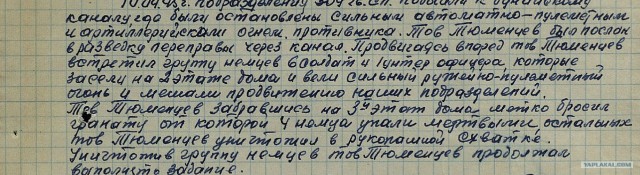 подразделения подошли к
каналу где были остановлены сильным автоматно-пулеметным
и артиллерийским огнем противника. Тов Тюменцев был послан
в разведку переправы через канал. Продвигаясь вперед тов Тюменцев
встретил группу немцев 8 солдат и 1 унтер офицера, которые
засели на 2 этаже дома и вели сильный ружейно-пулеметный
огонь и мешали продвижению наших подразделений.
Тов Тюменцев забравшись на 3й этаж дома метко бросил
гранату от которой 4 немца упали мертвыми остальных
тов Тюменцев уничтожил в рукопашной схватке.
Уничтожив группу немцев тов Тюменцев продолжал
выполнять задание.
YAPLAKAL.COM